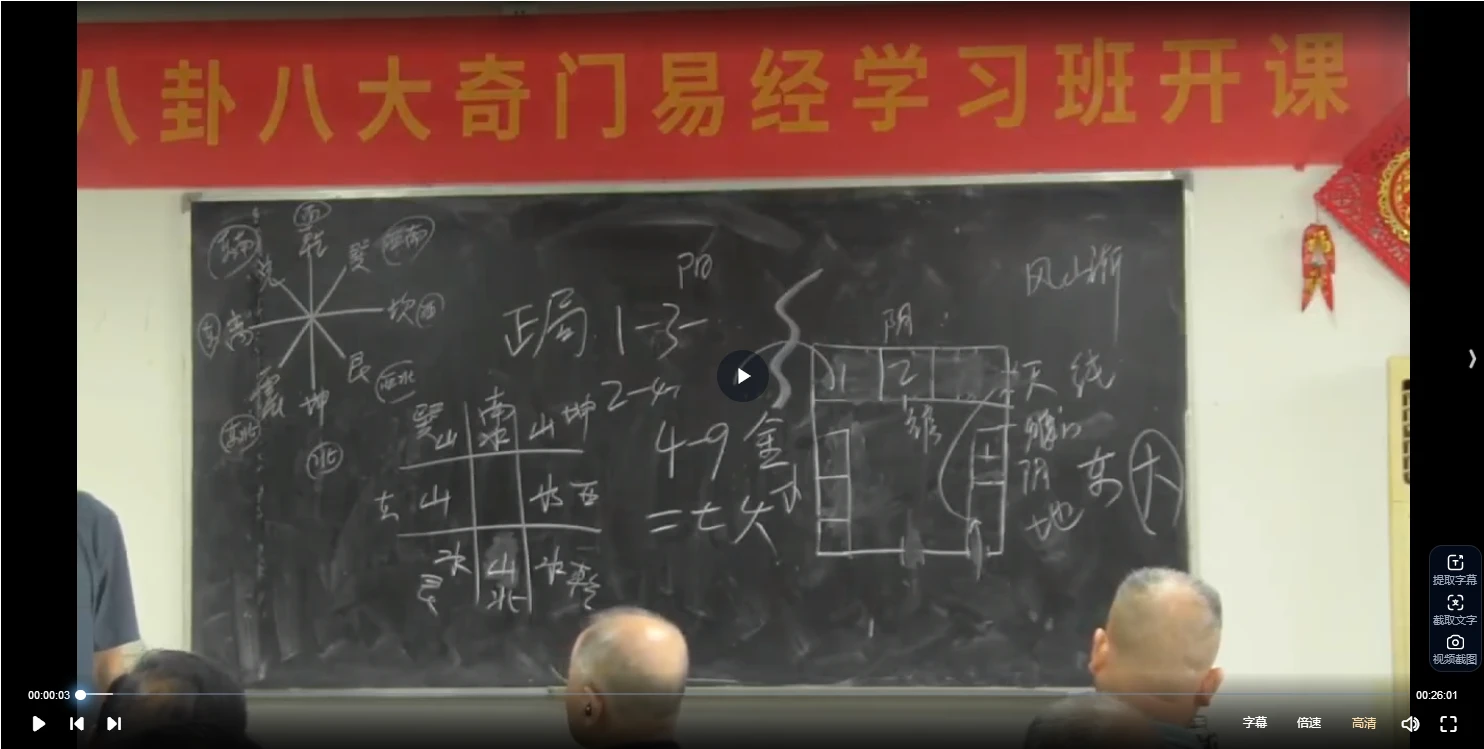 八卦八大奇门易经学习班开课
南
乾
东南
兑
巽
西南
离
坎
西
震
艮
西北
坤
东北
北
阳
正局 1-3-
2-4
4-9 金
二七火
阴
风山渐
1 2
天线
阴
地
东
大
巽 南 坤
山 水 山
东 山 水 西
水 山 水
艮 北 乾
提取字幕
截取文字
视频截图
00:00:03
00:26:01
字幕 倍速 高清